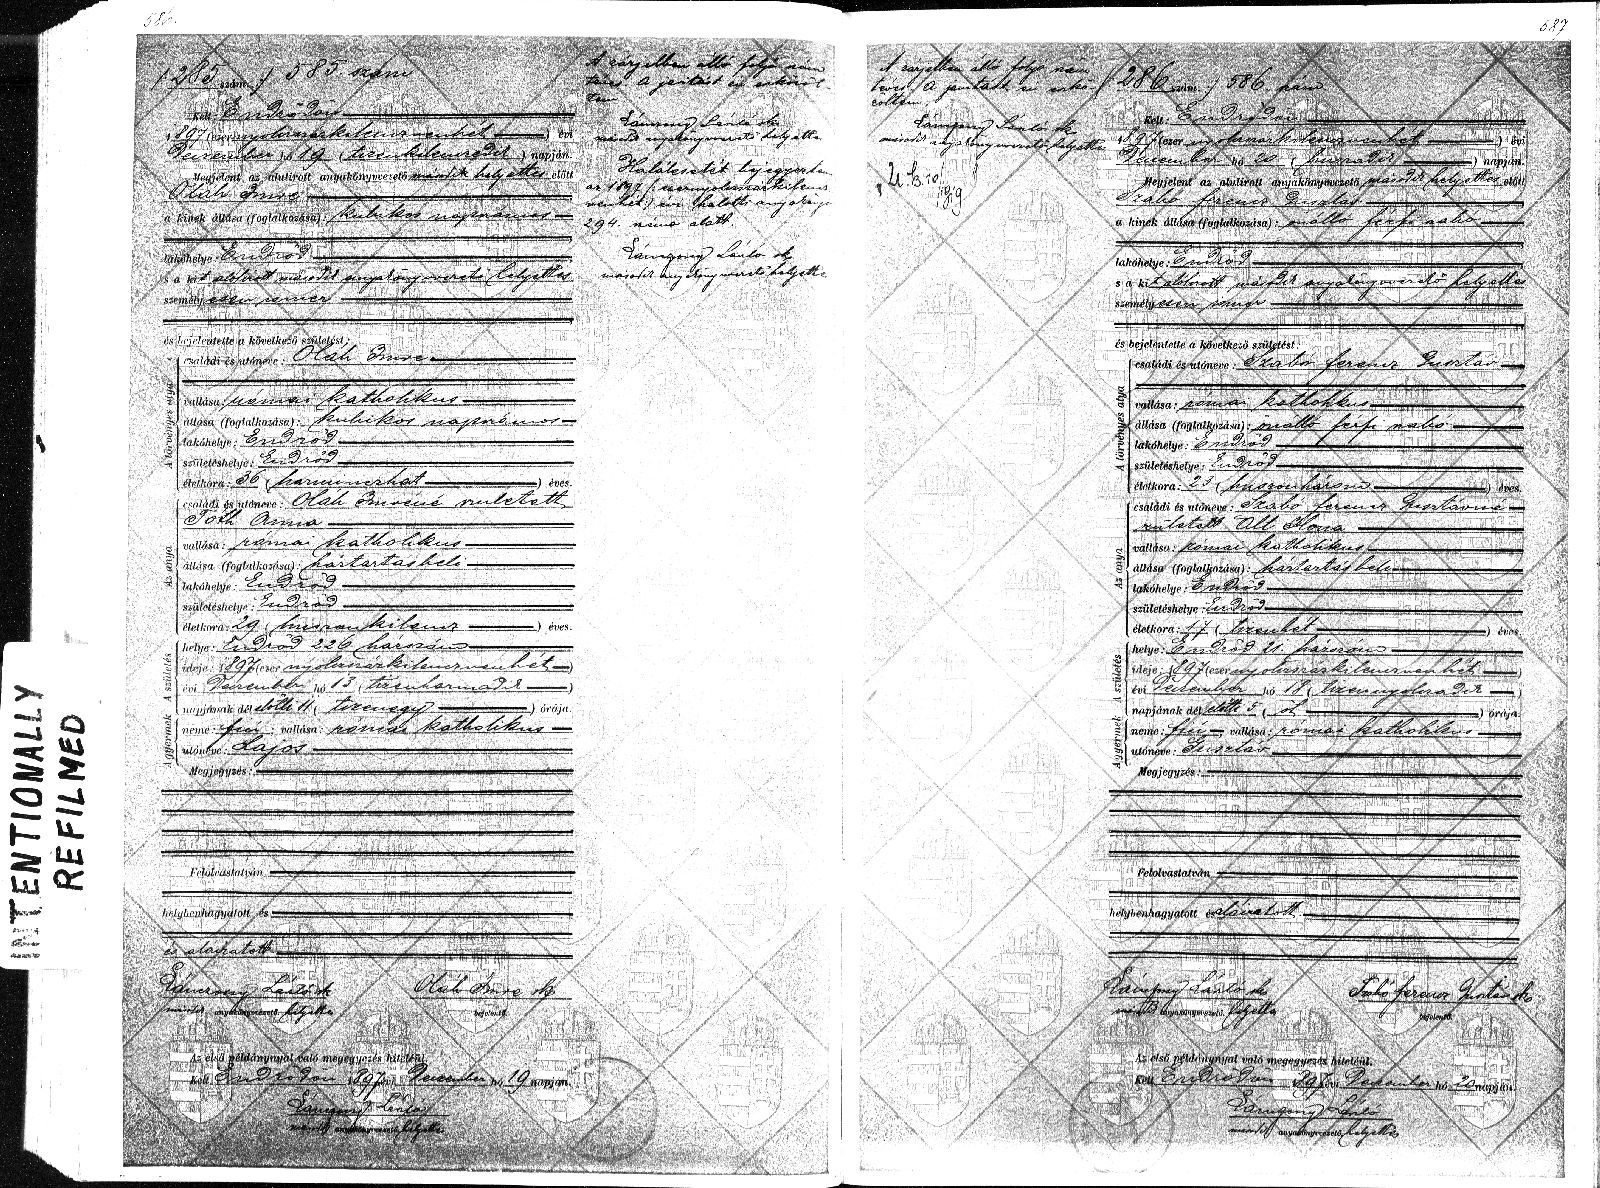 586.
285 szám. / 585 szám
Kelt Endrődön
1897 (ezernyolczszázkilenczvenhét) évi
December hó 19 (tizenkilenczedik) napján.
Megjelent az alulirott anyakönyvvezető második helyettes előtt
Oláh Imre
a kinek állása (foglalkozása): kubikos napszámos
lakóhelye: Endrőd
s a kit alulirott második anyakönyvvezető helyettes
személyesen ismer
és bejelentette a következő születést:
A törvényes atya
családi és utóneve: Oláh Imre
vallása: római katholikus
állása (foglalkozása): kubikos napszámos
lakóhelye: Endrőd
születéshelye: Endrőd
életkora: 36 (harminczhat) éves.
Az anya
családi és utóneve: Oláh Imréné született
Tóth Anna
vallása: római katholikus
állása (foglalkozása): háztartásbeli
lakóhelye: Endrőd
születéshelye: Endrőd
életkora: 29 (huszonkilencz) éves.
A születés
helye: Endrőd 226 házszám
ideje: 1897 (ezernyolczszázkilenczvenhét)
évi December hó 13 (tizenharmadik)
napjának dél előtti 11 (tizenegy) órája.
A gyermek
neme: fiú; vallása: római katholikus
utóneve: Lajos
Megjegyzés:
Felolvastatván
helybenhagyatott és
és aláiratott
László sk
második anyakönyvvezető helyettes
Oláh Imre sk
bejelentő.
Az első példánynyal való megegyezés hiteléül.
Kelt Endrődön 1897 évi December hó 19 napján.
László
második anyakönyvvezető helyettes
A szegélyben álló folyó szám
László sk
második anyakönyvvezető helyettes
Halálesetét bejegyeztem
az 1897 (ezernyolczszázkilencz
venhét) évi halotti anyakönyv
294. száma alatt.
László sk
második anyakönyvvezető helyettes
INTENTIONALLY
REFILMED
587
László sk
második anyakönyvvezető helyettes
286 szám. / 586 szám
Kelt: Endrődön
1897 (ezernyolczszázkilenczvenhét) évi
December hó 20 (huszadik) napján.
Megjelent az alulirott anyakönyvvezető második helyettes előtt
Szabó ferencz Gusztáv
a kinek állása (foglalkozása): önálló férfi szabó
lakóhelye: Endrőd
s a kit alulirott második anyakönyvvezető helyettes
személyesen ismer
és bejelentette a következő születést:
A törvényes atya
családi és utóneve: Szabó ferencz Gusztáv
vallása: római katholikus
állása (foglalkozása): önálló férfi szabó
lakóhelye: Endrőd
születéshelye: Endrőd
életkora: 23 (huszonhárom) éves.
Az anya
családi és utóneve: Szabó ferencz Gusztávné
született Ilona
vallása: római katholikus
állása (foglalkozása): háztartásbeli
lakóhelye: Endrőd
születéshelye: Endrőd
életkora: 17 (tizenhét) éves.
A születés
helye: Endrőd 21. házszám
ideje: 1897 (ezernyolczszázkilenczvenhét)
évi December hó 18 (tizennyolczadik)
napjának dél előtti 5 (öt) órája.
A gyermek
neme: fiú; vallása: római katholikus
utóneve: Gusztáv
Megjegyzés:
Felolvastatván
helybenhagyatott és aláiratott
László sk
második anyakönyvvezető helyettes
Szabó ferencz Gusztáv sk
bejelentő.
Az első példánynyal való megegyezés hiteléül.
Kelt Endrődön 1897 évi December hó 20 napján.
László
második anyakönyvvezető helyettes